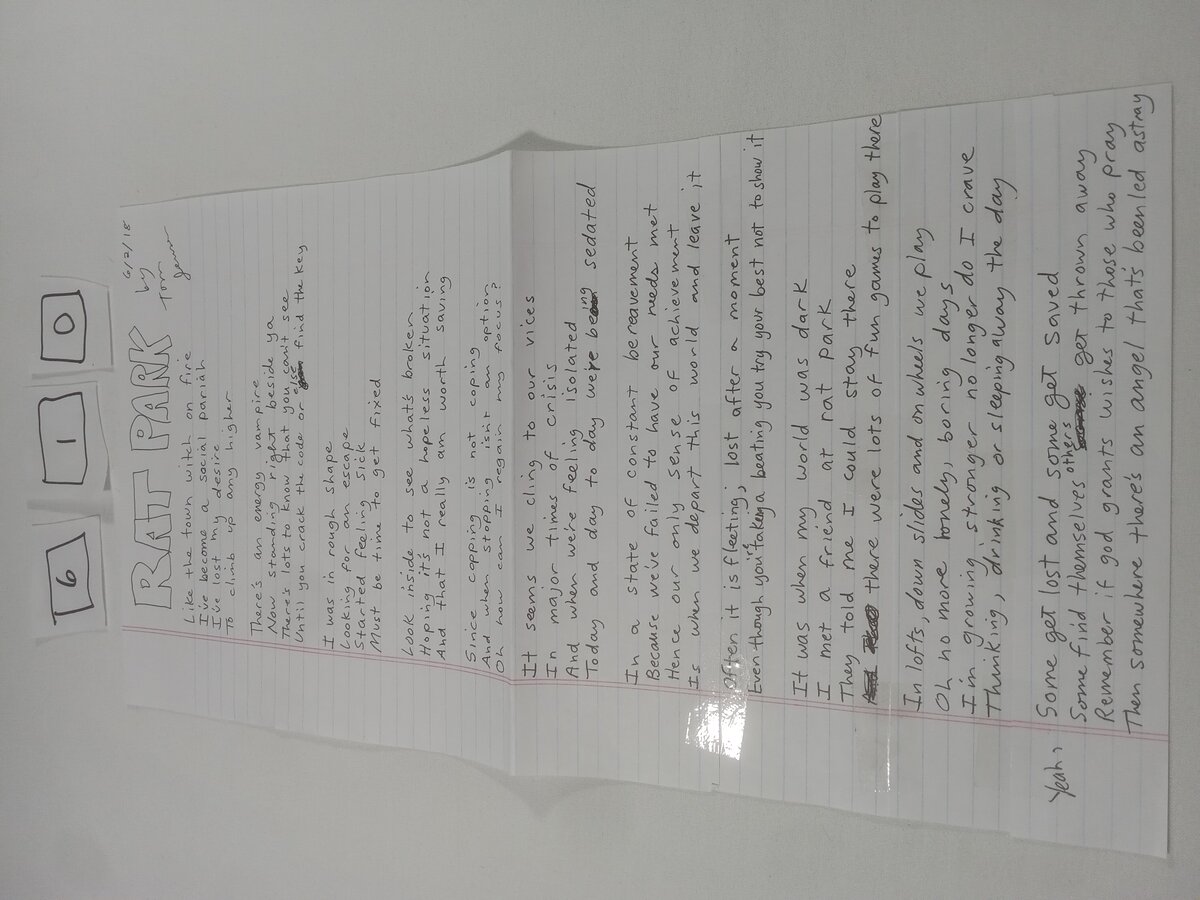 6 1 0
RAT PARK
6/2/18
by
Tom
Like the town witch on fire
I've become a social pariah
I've lost my desire
To climb up any higher
There's an energy vampire
Now standing right beside ya
There's lots to know that you can't see
Until you crack the code or else find the key
I was in rough shape
Looking for an escape
Started feeling sick
Must be time to get fixed
Look inside to see what's broken
Hoping it's not a hopeless situation
And that I really am worth saving
Since copping is not coping
And when stopping isn't an option
Oh how can I regain my focus?
It seems we cling to our vices
In major times of crisis
And when we're feeling isolated
Today and day to day we're being sedated
In a state of constant bereavement
Because we've failed to have our needs met
Hence our only sense of achievement
Is when we depart this world and leave it
Often it is fleeting; lost after a moment
Even though you're taking a beating you try your best not to show it
It was when my world was dark
I met a friend at rat park
They told me I could stay there
there were lots of fun games to play there
In lofts, down slides and on wheels we play
Oh no more lonely, boring days
I'm growing stronger no longer do I crave
Thinking, drinking or sleeping away the day
Yeah, Some get lost and some get saved
Some find themselves others get thrown away
Remember if god grants wishes to those who pray
Then somewhere there's an angel that's been led astray